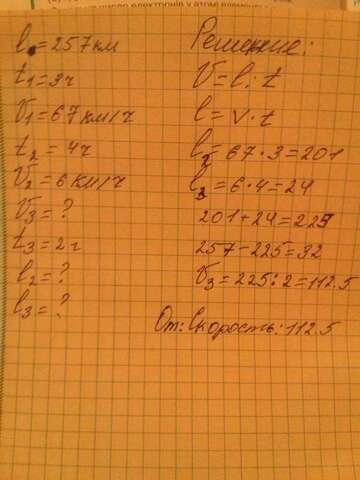 l = 257 км
t1 = 3ч
V1 = 67 км/ч
t2 = 4ч
V2 = 6 км/ч
V3 = ?
t3 = 2ч
l2 = ?
l3 = ?
Решение:
V = l : t
l = V · t
l2 = 67 · 3 = 201
l3 = 6 · 4 = 24
201 + 24 = 225
257 - 225 = 32
V3 = 225 : 2 = 112.5
От: Скорость: 112.5